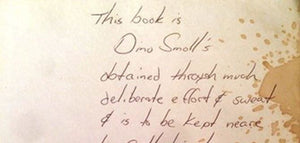 This book is
Omo Smoll's
obtained through much
deliberate effort & sweat
& is to be kept neare